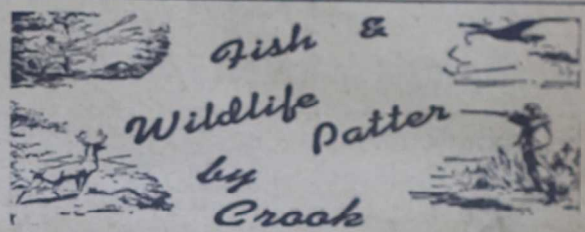 Fish &
Wildlife
Patter
by
Crook